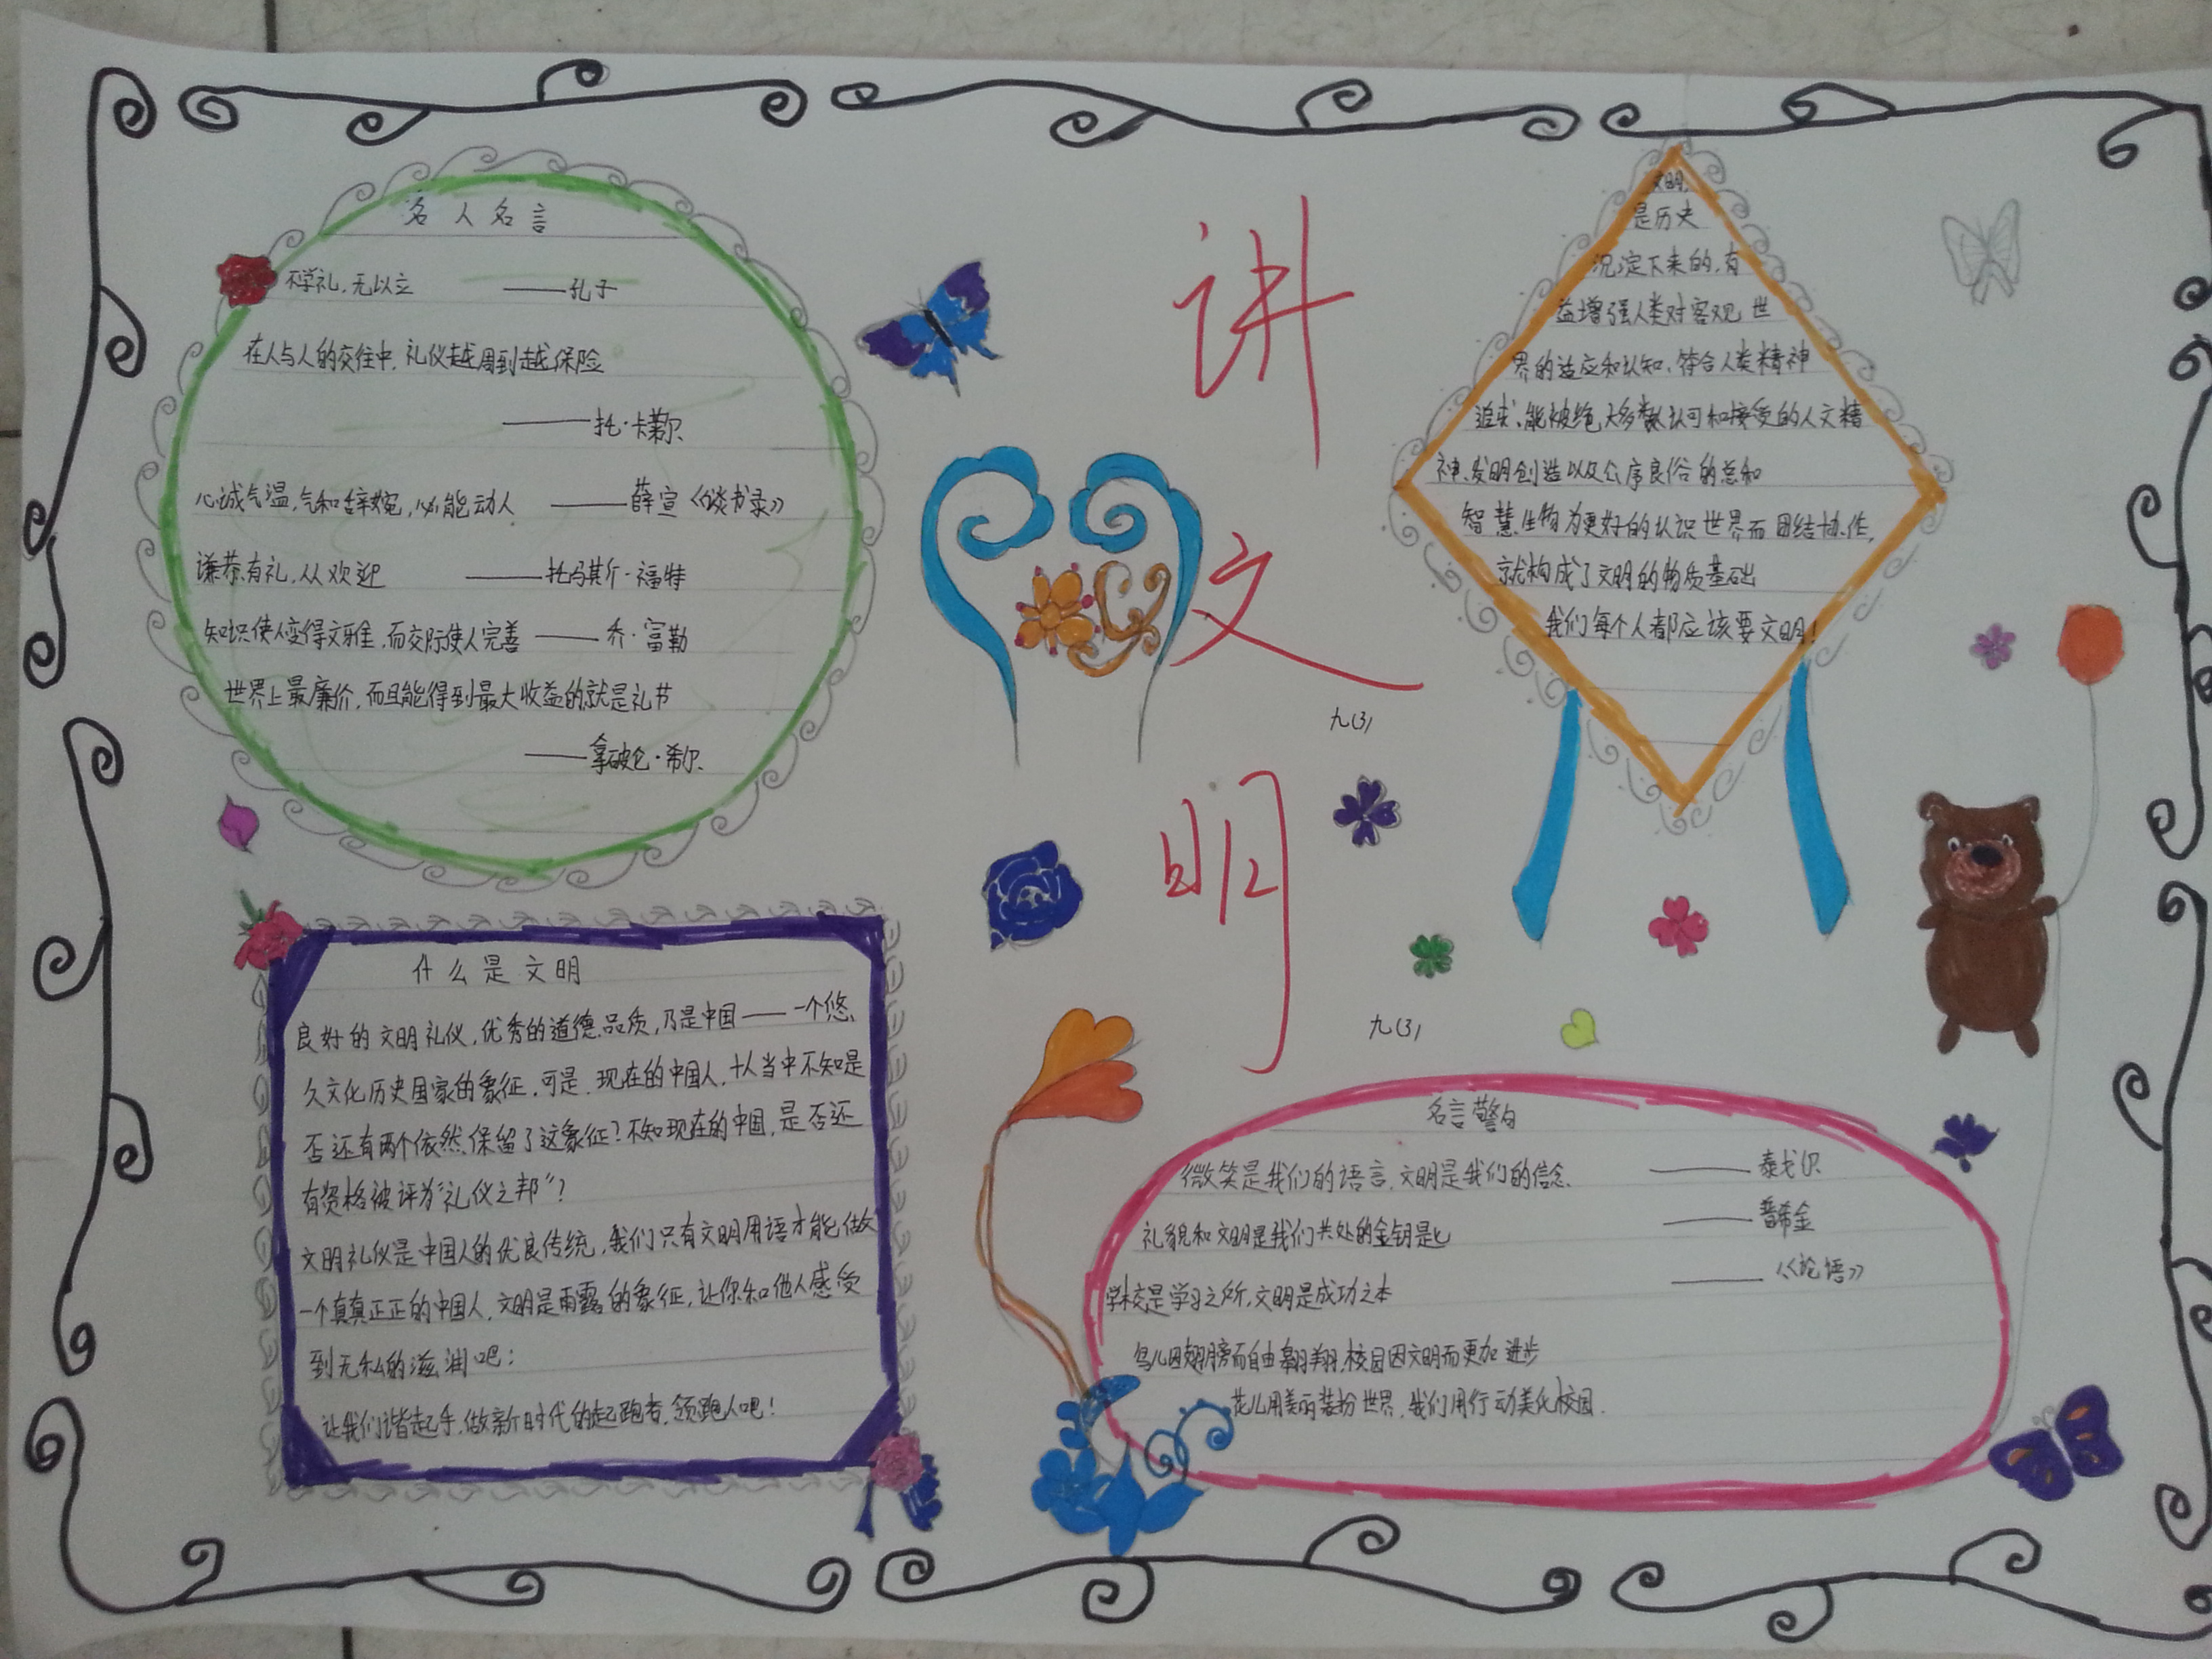 名人名言
不学礼,无以立 ——孔子
在人与人的交往中,礼仪越周到越保险
——托·卡莱尔
心诚气温,气和辞婉,必能动人 ——薛宣《读书录》
谦恭有礼,从欢迎 ——托马斯·福特
知识使人变得文雅,而交际使人完善 ——乔·富勒
世界上最廉价,而且能得到最大收益的就是礼节
——拿破仑·希尔
讲
文
明
九(3)
九(3)
文明
是历史
沉淀下来的,有
益增强人类对客观世
界的适应和认知、符合人类精神
追求、能被绝大多数认可和接受的人文精
神、发明创造以及公序良俗的总和
智慧生物为更好的认识世界而团结协作,
就构成了文明的物质基础
我们每个人都应该要文明!
什么是文明
良好的文明礼仪,优秀的道德品质,乃是中国——一个悠
久文化历史国家的象征,可是,现在的中国人,从当中不知是
否还有两个依然保留了这象征?不知现在的中国,是否还
有资格被评为“礼仪之邦”?
文明礼仪是中国人的优良传统,我们只有文明用语才能做
一个真真正正的中国人,文明是雨露的象征,让你和他人感受
到无私的滋润吧:
让我们谐起手,做新时代的起跑者,领跑人吧!
名言警句
微笑是我们的语言,文明是我们的信念. ——泰戈尔
礼貌和文明是我们共处的金钥是匕 ——普希金
学校是学习之所,文明是成功之本 ——《论语》
鸟儿因翅膀而自由翱翔,校园因文明而更加进步
花儿用美丽装扮世界,我们用行动美化校园.